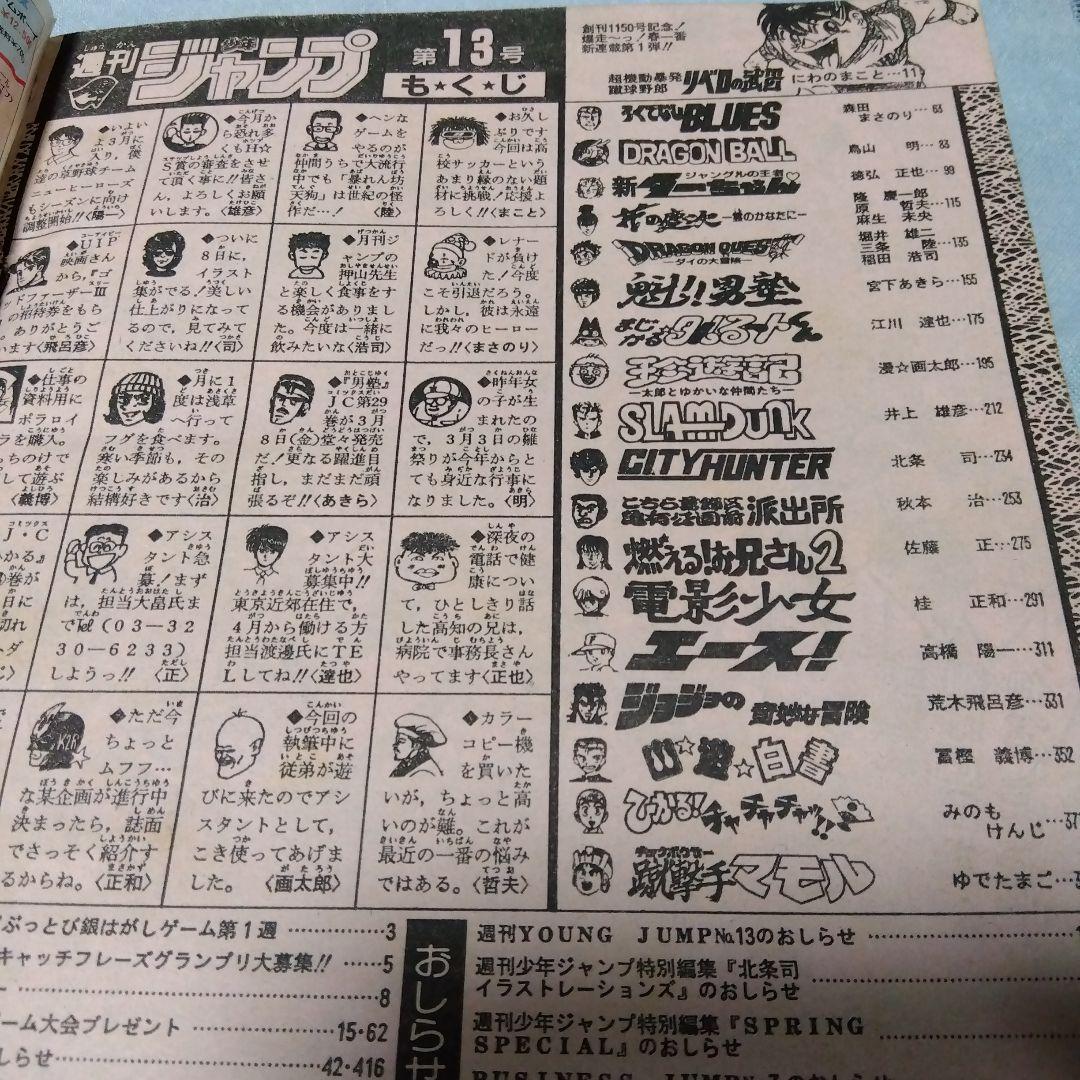 週刊少年ジャンプ
第13号
も★く★じ
創刊1150号記念！
爆走〜っ！春一番
新連載第1弾!!
超機動暴発
蹴球野郎
リベロの武田
にわのまこと…11
ろくでなしBLUES 森田まさのり…63
DRAGON BALL 鳥山 明…83
新ジャングルの王者ターちゃん♡ 徳弘 正也…99
花の慶次―雲のかなたに― 隆 慶一郎 原 哲夫 麻生 未央…115
DRAGON QUEST―ダイの大冒険― 堀井 雄二 三条 陸 稲田 浩司…135
魁!!男塾 宮下あきら…155
まじかる☆タルるートくん 江川 達也…175
珍遊記―太郎とゆかいな仲間たち― 漫☆画太郎…195
SLAM DUNK 井上 雄彦…212
CITY HUNTER 北条 司…234
こちら葛飾区亀有公園前派出所 秋本 治…253
燃える!お兄さん2 佐藤 正…275
電影少女 桂 正和…291
エース! 高橋 陽一…311
ジョジョの奇妙な冒険 荒木飛呂彦…331
幽★遊★白書 冨樫 義博…352
ひかる!チャチャチャッ!! みのもけんじ…37
蹴撃手マモル ゆでたまご
◆いよい
よ3月に
入り，僕
達の草野球チーム
ニューヒーローズ
もシーズンに向け
調整開始!!〈陽一〉
◆今月か
ら恐れ多
くもH☆
S賞の審査をさせ
て頂く事に!!皆さ
ん，よろしくお願
いします。〈雄彦〉
◆ヘンな
ゲームを
やるのが
仲間うちで大流行
中でも「暴れん坊
天狗」は世紀の怪
作だ…！〈陸〉
◆お久し
ぶりです
今回は高
校サッカーという
あまり縁のない題
材に挑戦！応援よ
ろしく!!〈まこと〉
◆UIP
映画さん
から，『ゴ
ッドファーザーⅢ
の招待券をもら
ありがとうご
います〈飛呂彦〉
◆ついに
8日に，
イラスト
集がでる！美しい
仕上がりになって
るので，見てみて
くださいね!!〈司〉
◆月刊ジ
ャンプの
押山先生
と楽しく食事をす
る機会がありまし
た。今度は一緒に
飲みたいな〈浩司〉
◆レナー
ドが負け
た！今度
こそ引退だろう。
しかし，彼は永遠
に我々のヒーロー
だっ!!〈まさのり〉
◆仕事の
資料用に
ポラロイ
ラを購入。
っちのけで
して遊ぶ
〈義博〉
◆月に1
度は浅草
へ行って
フグを食べます。
寒い季節も，その
楽しみがあるから
結構好きです〈治〉
◆『男塾』
JC第29
巻が3月
8日(金)堂々発売
だ！更なる躍進目
指し，まだまだ頑
張るぞ!!〈あきら〉
◆昨年女
の子が生
まれたの
で，3月3日の雛
祭りが今年からと
ても身近な行事に
なりました。〈明〉
J・C
かる』
巻が
日に
切れ
◆アシス
タント急
募！まず
は，担当大畠氏ま
でTel（03―32
30―6233）
しようっ!!〈正〉
◆アシス
タント大
募集中!!
東京近郊在住で，
4月から働ける方
担当渡邊氏にTE
Lしてね!!〈達也〉
◆深夜の
電話で健
康につい
て，ひとしきり話
した高知の兄は，
病院で事務長さん
やってます〈正也〉
◆ただ今
ちょっと
ムフフ…
な某企画が進行中
決まったら，誌面
でさっそく紹介す
るからね。〈正和〉
◆今回の
執筆中に
従弟が遊
びに来たのでアシ
スタントとして，
こき使ってあげま
した。〈画太郎〉
◆カラー
コピー機
を買いた
いが，ちょっと高
いのが難。これが
最近の一番の悩み
ではある。〈哲夫〉
ぶっとび銀はがしゲーム第1週…3
キャッチフレーズグランプリ大募集!!…5
…8
ーム大会プレゼント…15・62
しらせ…42・416
おしらせ
週刊YOUNG JUMP№13のおしらせ
週刊少年ジャンプ特別編集『北条司
イラストレーションズ』のおしらせ
週刊少年ジャンプ特別編集『SPRING
SPECIAL』のおしらせ